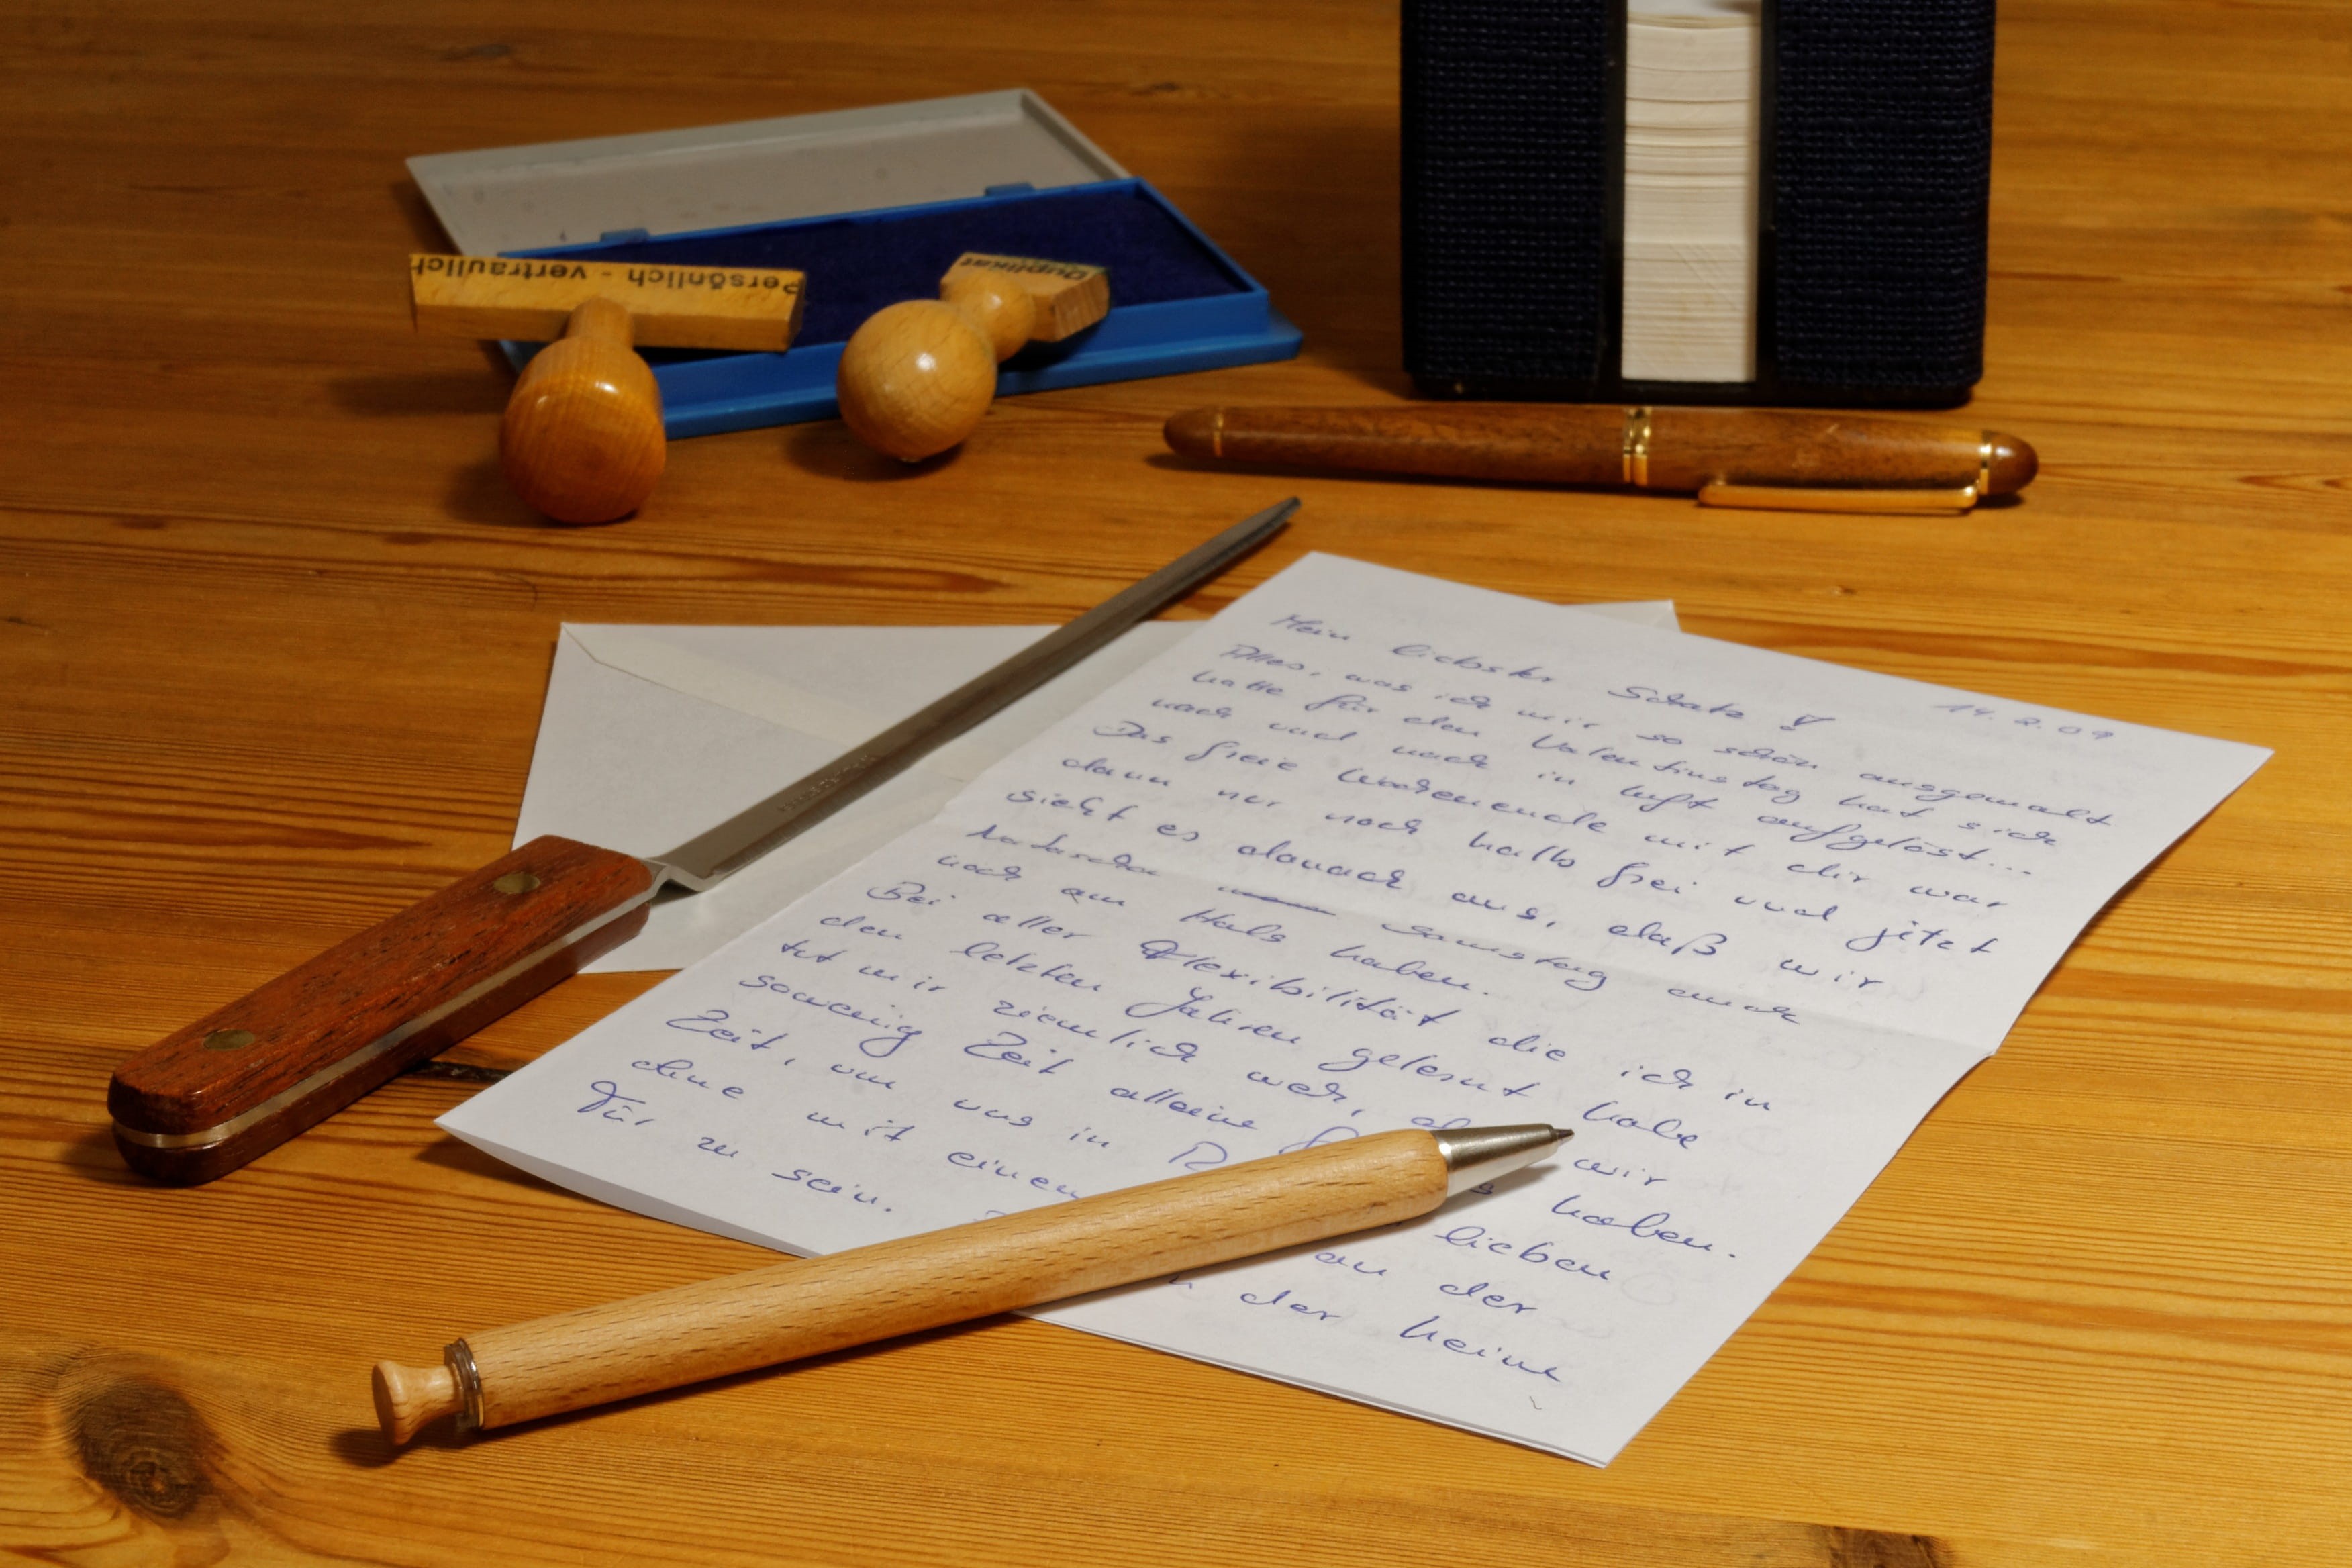 Persönlich - vertraulich
Duplikat
14.2.09
Mein liebster Schatz
Alles, was ich mir so schön ausgemalt
hatte für den Valentinstag hat sich
nach und nach in luft aufgelöst...
Das freie Wochenende mit dir war
dann nur noch halb frei und jetzt
sieht es danach aus, daß wir
Natascha Samstag auch
noch am Hals haben.
Bei aller Flexibilität die ich in
den letzten Jahren gelernt habe
tut mir ziemlich weh, wir
sowenig Zeit alleine haben.
Zeit, um uns in lieben
ohne mit einem an der
Tür zu sein. der keine